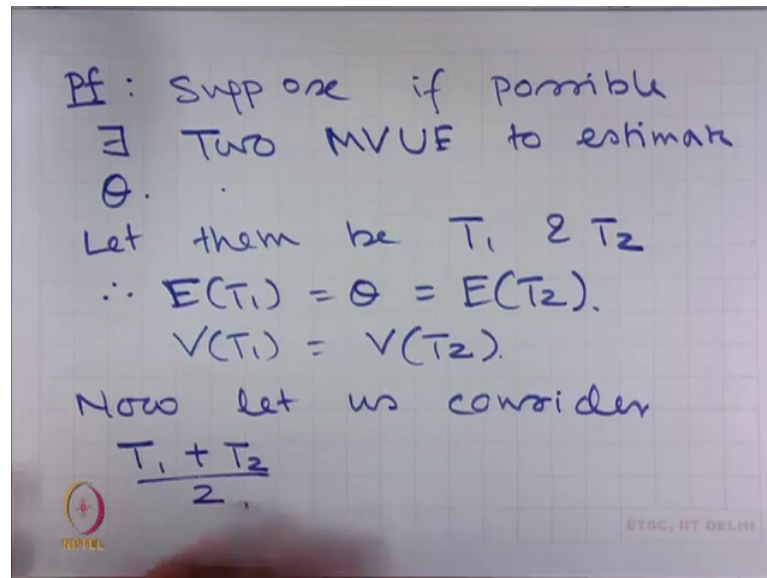 Pf : Suppose if possible
∃ Two MVUE to estimate
θ.
Let them be T₁ & T₂
∴ E(T₁) = θ = E(T₂).
V(T₁) = V(T₂).
Now let us consider
T₁ + T₂
2.
NPTEL
ETSC, IIT DELHI